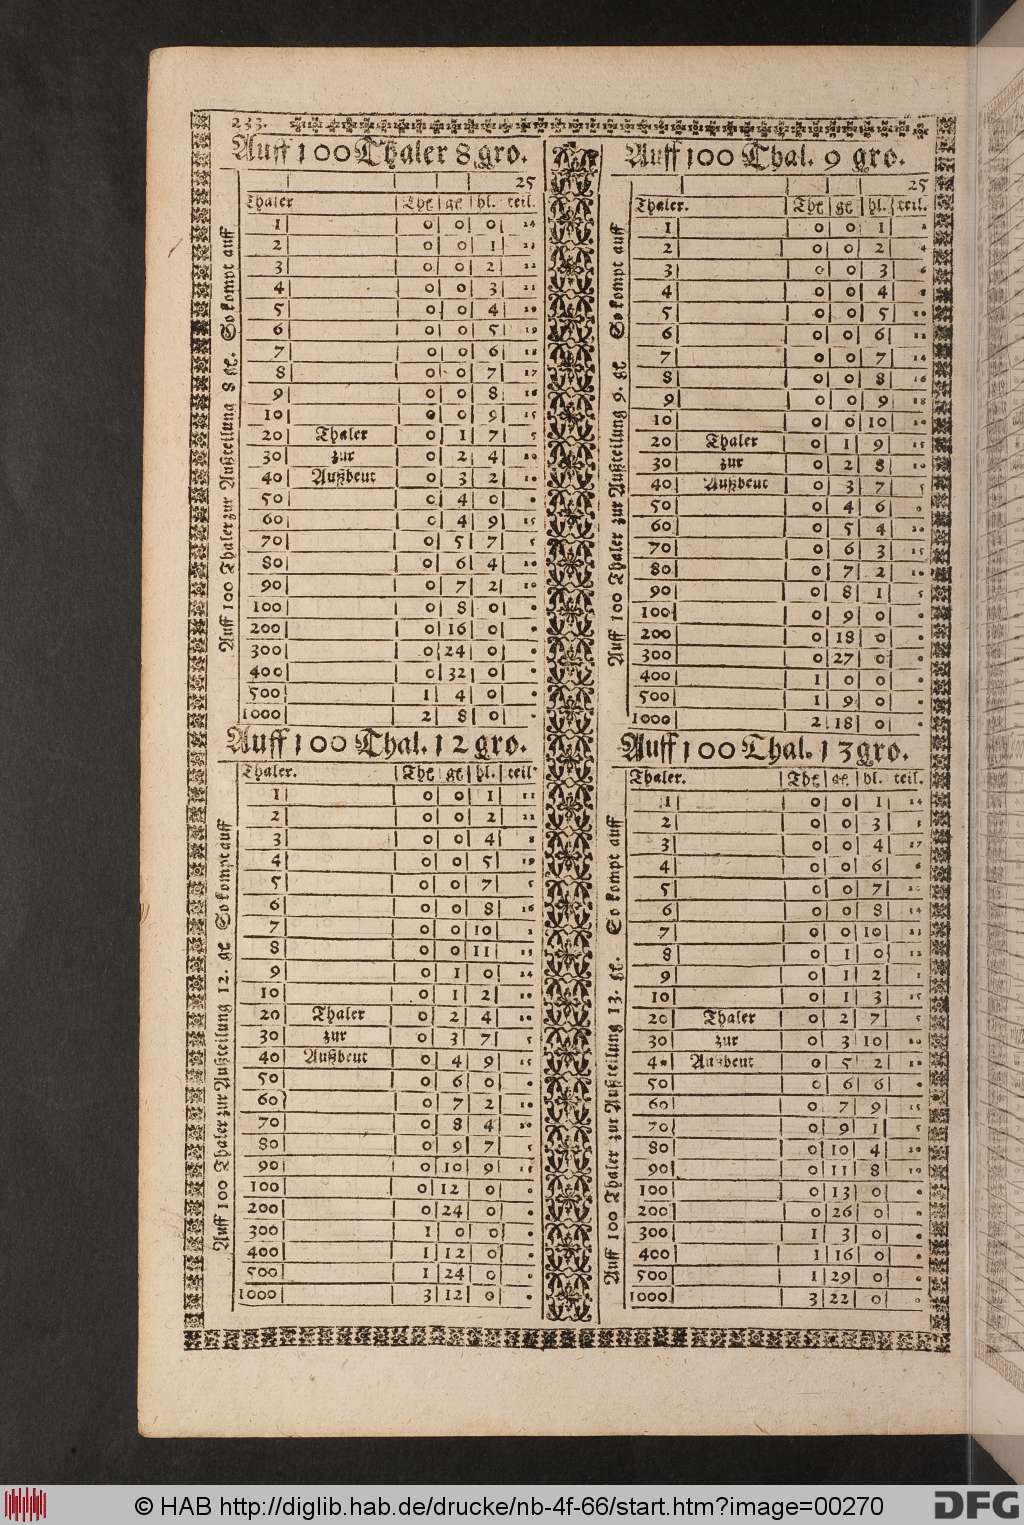 233.
Auff 100 Thaler 8 gro.
25
Thaler Thl gl hl. teil.
1 0 0 0 24
2 0 0 1 23
3 0 0 2 22
4 0 0 3 21
5 0 0 4 20
6 0 0 5 19
7 0 0 6 18
8 0 0 7 17
9 0 0 8 16
10 0 0 9 15
20 Thaler 0 1 7 5
30 zur 0 2 4 20
40 Außbeut 0 3 2 10
50 0 4 0 0
60 0 4 9 15
70 0 5 7 5
80 0 6 4 20
90 0 7 2 10
100 0 8 0 0
200 0 16 0 0
300 0 24 0 0
400 0 32 0 0
500 1 4 0 0
1000 2 8 0 0
Auff 100 Thaler zur Außteilung 8 gl. So kompt auff
Auff 100 Thal. 9 gro.
25
Thaler. Thl gl hl. teil.
1 0 0 1 2
2 0 0 2 4
3 0 0 3 6
4 0 0 4 8
5 0 0 5 10
6 0 0 6 12
7 0 0 7 14
8 0 0 8 16
9 0 0 9 18
10 0 0 10 20
20 Thaler 0 1 9 15
30 zur 0 2 8 10
40 Außbeut 0 3 7 5
50 0 4 6 0
60 0 5 4 20
70 0 6 3 15
80 0 7 2 10
90 0 8 1 5
100 0 9 0 0
200 0 18 0 0
300 0 27 0 0
400 1 0 0 0
500 1 9 0 0
1000 2 18 0 0
Auff 100 Thaler zur Außteilung 9. gl So kompt auff
Auff 100 Thal. 12 gro.
Thaler. Thl gl hl. teil
1 0 0 1 11
2 0 0 2 22
3 0 0 4 8
4 0 0 5 19
5 0 0 7 5
6 0 0 8 16
7 0 0 10 2
8 0 0 11 13
9 0 1 0 24
10 0 1 2 10
20 Thaler 0 2 4 20
30 zur 0 3 7 5
40 Außbeut 0 4 9 15
50 0 6 0 0
60 0 7 2 10
70 0 8 4 20
80 0 9 7 5
90 0 10 9 15
100 0 12 0 0
200 0 24 0 0
300 1 0 0 0
400 1 12 0 0
500 1 24 0 0
1000 3 12 0 0
Auff 100 Thaler zur Außteilung 12. gl So kompt auff
Auff 100 Thal. 13 gro.
Thaler. Thl gl. hl. teil.
1 0 0 1 14
2 0 0 3 3
3 0 0 4 17
4 0 0 6 6
5 0 0 7 20
6 0 0 8 14
7 0 0 10 23
8 0 1 0 12
9 0 1 2 1
10 0 1 3 15
20 Thaler 0 2 7 5
30 zur 0 3 10 20
40 Außbeut 0 5 2 10
50 0 6 6 0
60 0 7 9 15
70 0 9 1 5
80 0 10 4 20
90 0 11 8 10
100 0 13 0 0
200 0 26 0 0
300 1 3 0 0
400 1 16 0 0
500 1 29 0 0
1000 3 22 0 0
Auff 100 Thaler zur Außteilung 13. gl. So kompt auff
© HAB http://diglib.hab.de/drucke/nb-4f-66/start.htm?image=00270
DFG